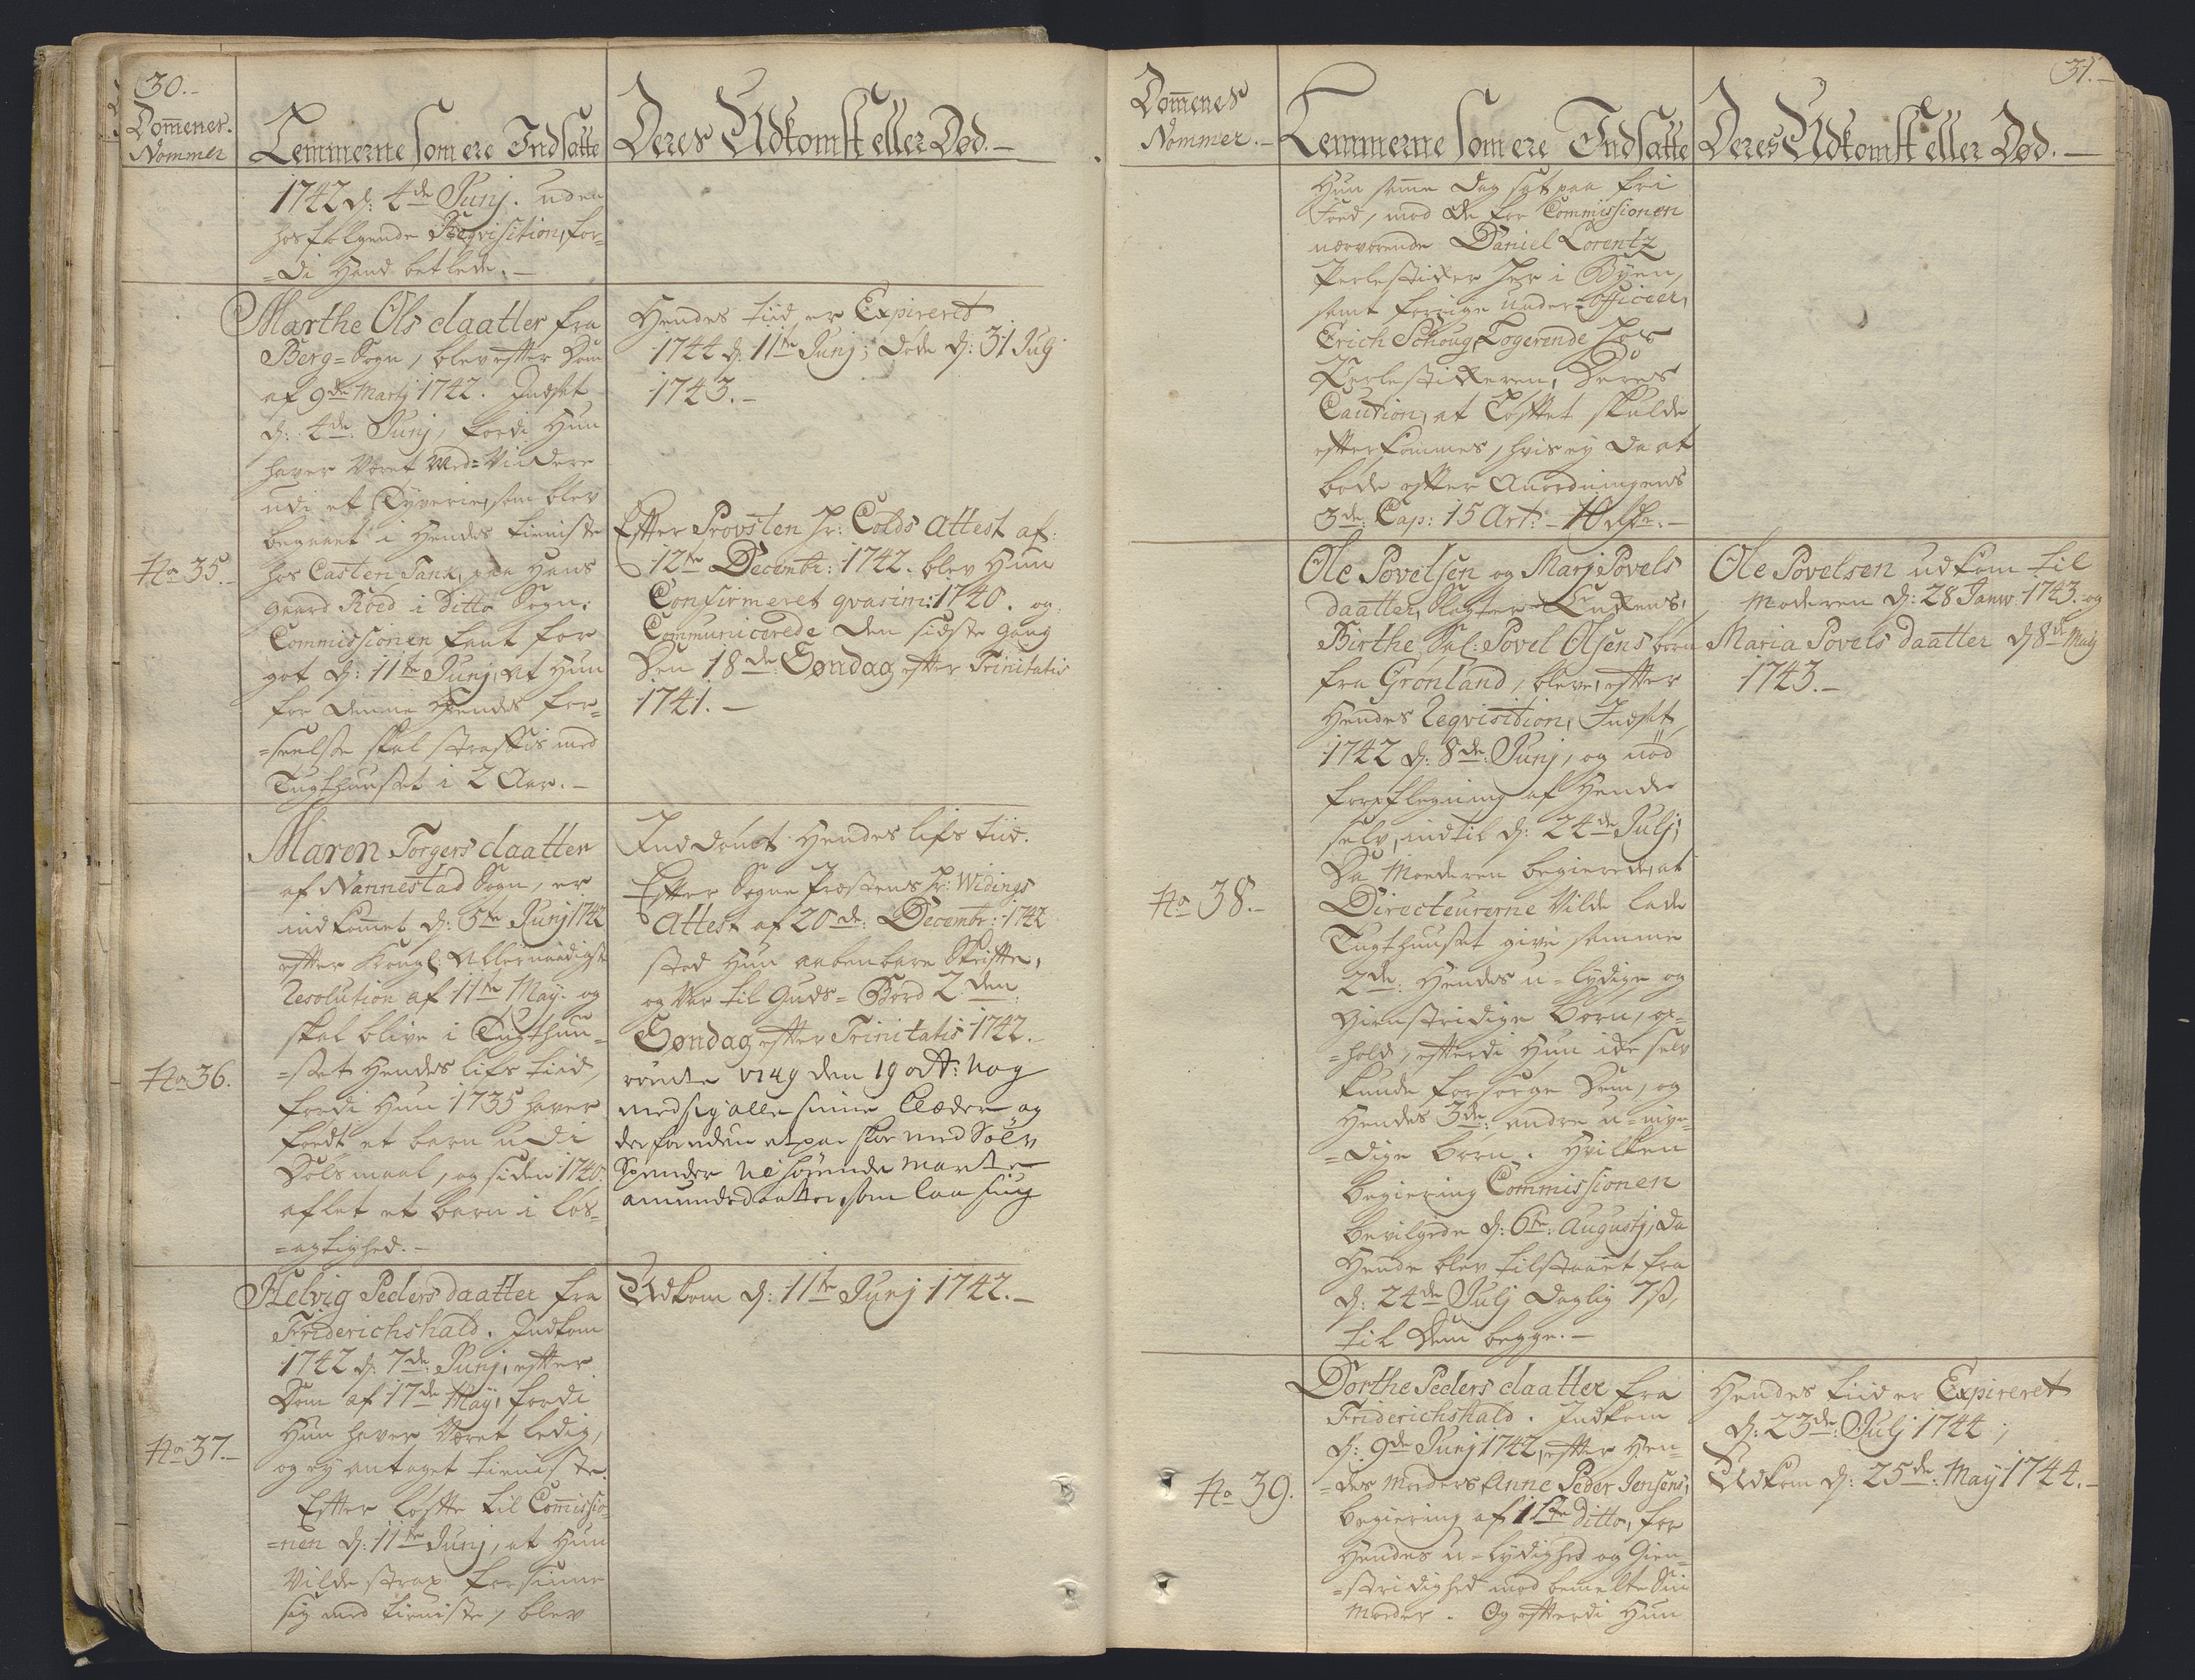 30.-
Domenes
Nommer
Lemmerne som ere Indsatte
Deres Udkomst eller Død.-
1742 d: 4de Junj. uden
hosfølgende Reqvisition, for=
=di Hand betlede.-
No 35.-
Marthe Ols daatter fra
Berg=Sogn, blev efter Dom
af 9de Martj 1742. Indsat
d: 4de Junj, fordi Hun
haver Været Med=Videre
udi et Tyverie, som blev
begaaet i Hendes tieniste
hos Casten Tank, paa Hans
gaard Röed i Ditto Sogn:
Commissionen fant for
got d: 11te Junj, at Hun
for denne Hendes for=
=seelse skal straffis med
Tugthuuset i 2 Aar.-
Hendes tiid er Expireret
1744 d: 11te Junj; døde d: 31 Julj
1743.-
Efter Provsten Hr: Colds Attest af:
12te Decembr: 1742. blev Hun
Confirmeret qvasim: 1740. og
Communicerede den sidste gang
Den 18de Søndag efter Trinitatis
1741.-
No 36.
Maren Torgers daatter
af Nannestad Sogn, er
indkomet d: 5te Junj 1742
efter Kongl: Allernaadigste
Resolution af 11te May. og
skal blive i Tugthuu=
=set Hendes lifs tiid,
fordi Hun 1735 haver
født et barn udi
Dølsmaal, og siden 1740.
aflet et barn i Løs=
=agtighed.-
Inddömt Hendes lifs tiid.
Efter Sogne Præstens Hr: Widings
Attest af 20de: Decembr: 1742
stod Hun aabenbare Skrifte,
og Var til Guds=Bord 2den
Søndag efter Trinitatis 1742.-
römte 1749 den 19 oct: nog
med sig alle sinne Clæder og
der foruden et par skoe med Sölv
Spender tilhörende Marte
amundsdaatter, som laa siug
No 37.-
Helvig Peders daatter fra
Friderichshald. Indkom
1742 d: 7de Junj, efter
Dom af 17de May, fordi
Hun haver Været ledig,
og ey antaget tieniste.
Efter løfte til Comissio=
=nen d: 11te Junj, at Hun
Vilde strax forsiune
sig med tieniste, blev
Udkom d: 11te Junj 1742.-
31.-
Domenes
Nommer.-
Lemmerne som ere Indsatte
Deres Udkomst eller Død.-
Hun samme dag sat paa fri
foed, mod de for Commissionen
nærværende Daniel Lorentz
Perlestikker her i Byen,
samt forrige under=Officeer,
Erich Schoug, Logerende hos
Perlestikkeren, Deres
Caution, at Løftet skulde
efterkommes, hvis ey da at
bøde efter Anordningens
3de: Cap: 15 Art: 10 rdr.-
No 38.-
Ole Povelsen og Marj Povels
daatter, Slagter Enkens,
Birthe Sal: Povel Olsens børn
fra Grønland, bleve, efter
Hendes Reqvisition, Indsat
1742 d: 8de: Junj, og nød
forpflegning af Hende
selv, indtil d: 24de Julj;
Da Moderen begierede, at
Directeurerne Vilde lade
Tugthuuset give samme
2de: Hendes u=lydige og
gienstridige børn, op=
=hold, efterdi Hun icke selv
kunde forsørge Dem, og
Hendes 3de: andre u=myn=
=dige børn. Hvilken
begiering Commissionen
bevilgede d: 6te: Augustj, da
Hende blev tilstaaet fra
d: 24de Julj daglig 7 s,
til dem begge.-
Ole Povelsen udkom til
Moderen d: 28 Janv: 1743. og
Maria Povels daatter d 8de May
1743.-
No 39.
Dorthe Peders daatter fra
Friderichshald. Indkom
d: 9de Junj 1742, efter Hen=
=des Moders Anne Peder Jensens,
begiering af 1ste ditto, for
Hendes u=lydighed og Gien=
=stridighed mod bemelte Sin
Moder. Og efterdi Hun
Hendes tiid er Expireret
d: 23de: Julj 1744;
Udkom d: 25de: May 1744.-